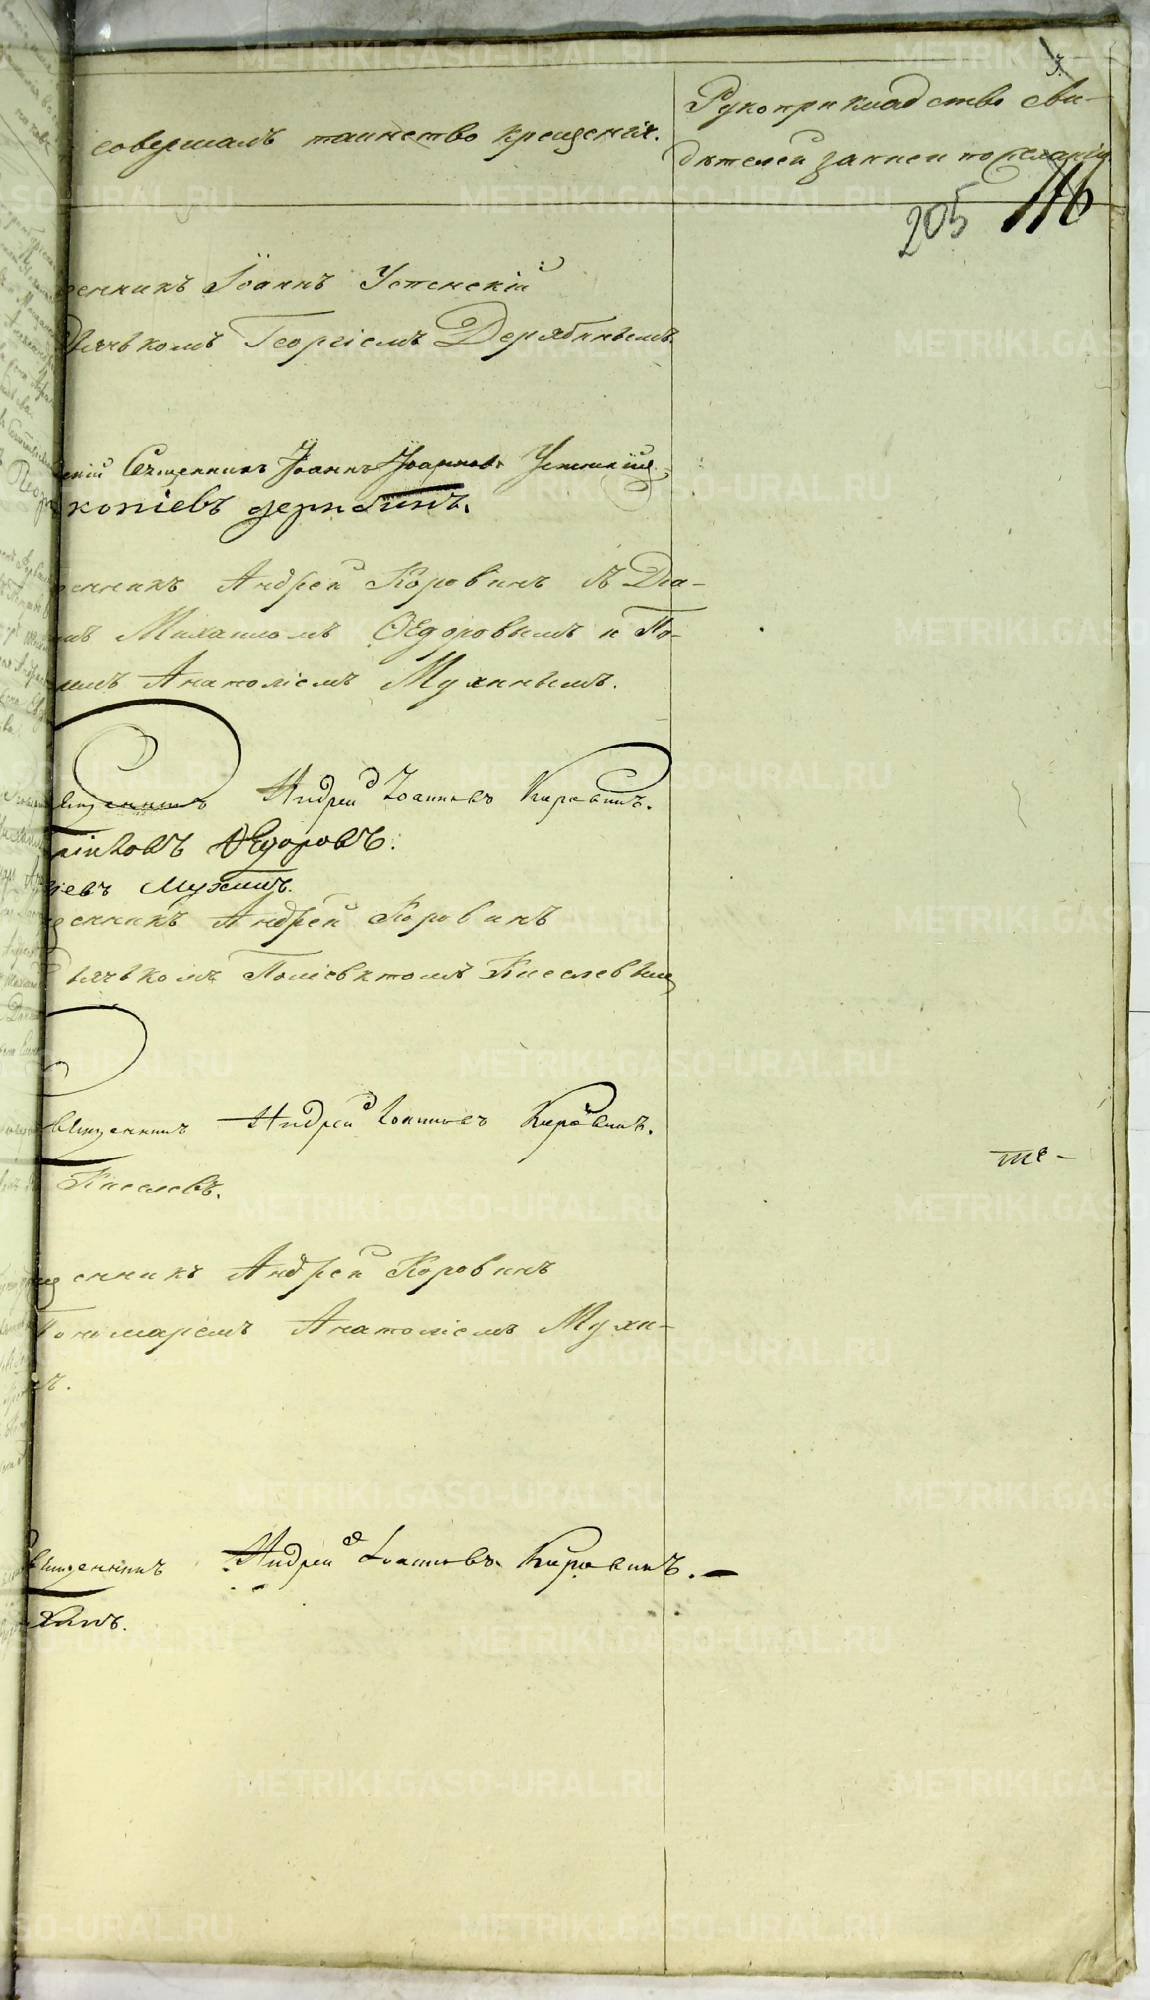 3.
Рукоприкладство сви-
совершалъ таинство крещенія.
дѣтелей записи по желанію
205 116
енникъ Іоаннъ Успенскій
Дьячькомъ Георгіемъ Дерябинымъ
скій Священникъ Іоаннъ Іоанновъ Успенскій
копіевъ Дерябинъ.
енникъ Андрей Коровинъ съ Діа-
мъ Михаиломъ Ѳедоровымъ и По-
мъ Анатоліемъ Мухинымъ.
Священникъ Андрей Іоанновъ Коровинъ.
Ѳедоровъ.
іевъ Мухинъ.
щенникъ Андрей Коровинъ
Дьячькомъ Поліевктомъ Киселевымъ
Священникъ Андрей Іоанновъ Коровинъ.
те-
Киселевъ.
щенникъ Андрей Коровинъ
Пономаремъ Анатоліемъ Мухи-
мъ.
Священникъ Андрей Іоанновъ Коровинъ.
хинъ.
METRIKI.GASO-URAL.RU